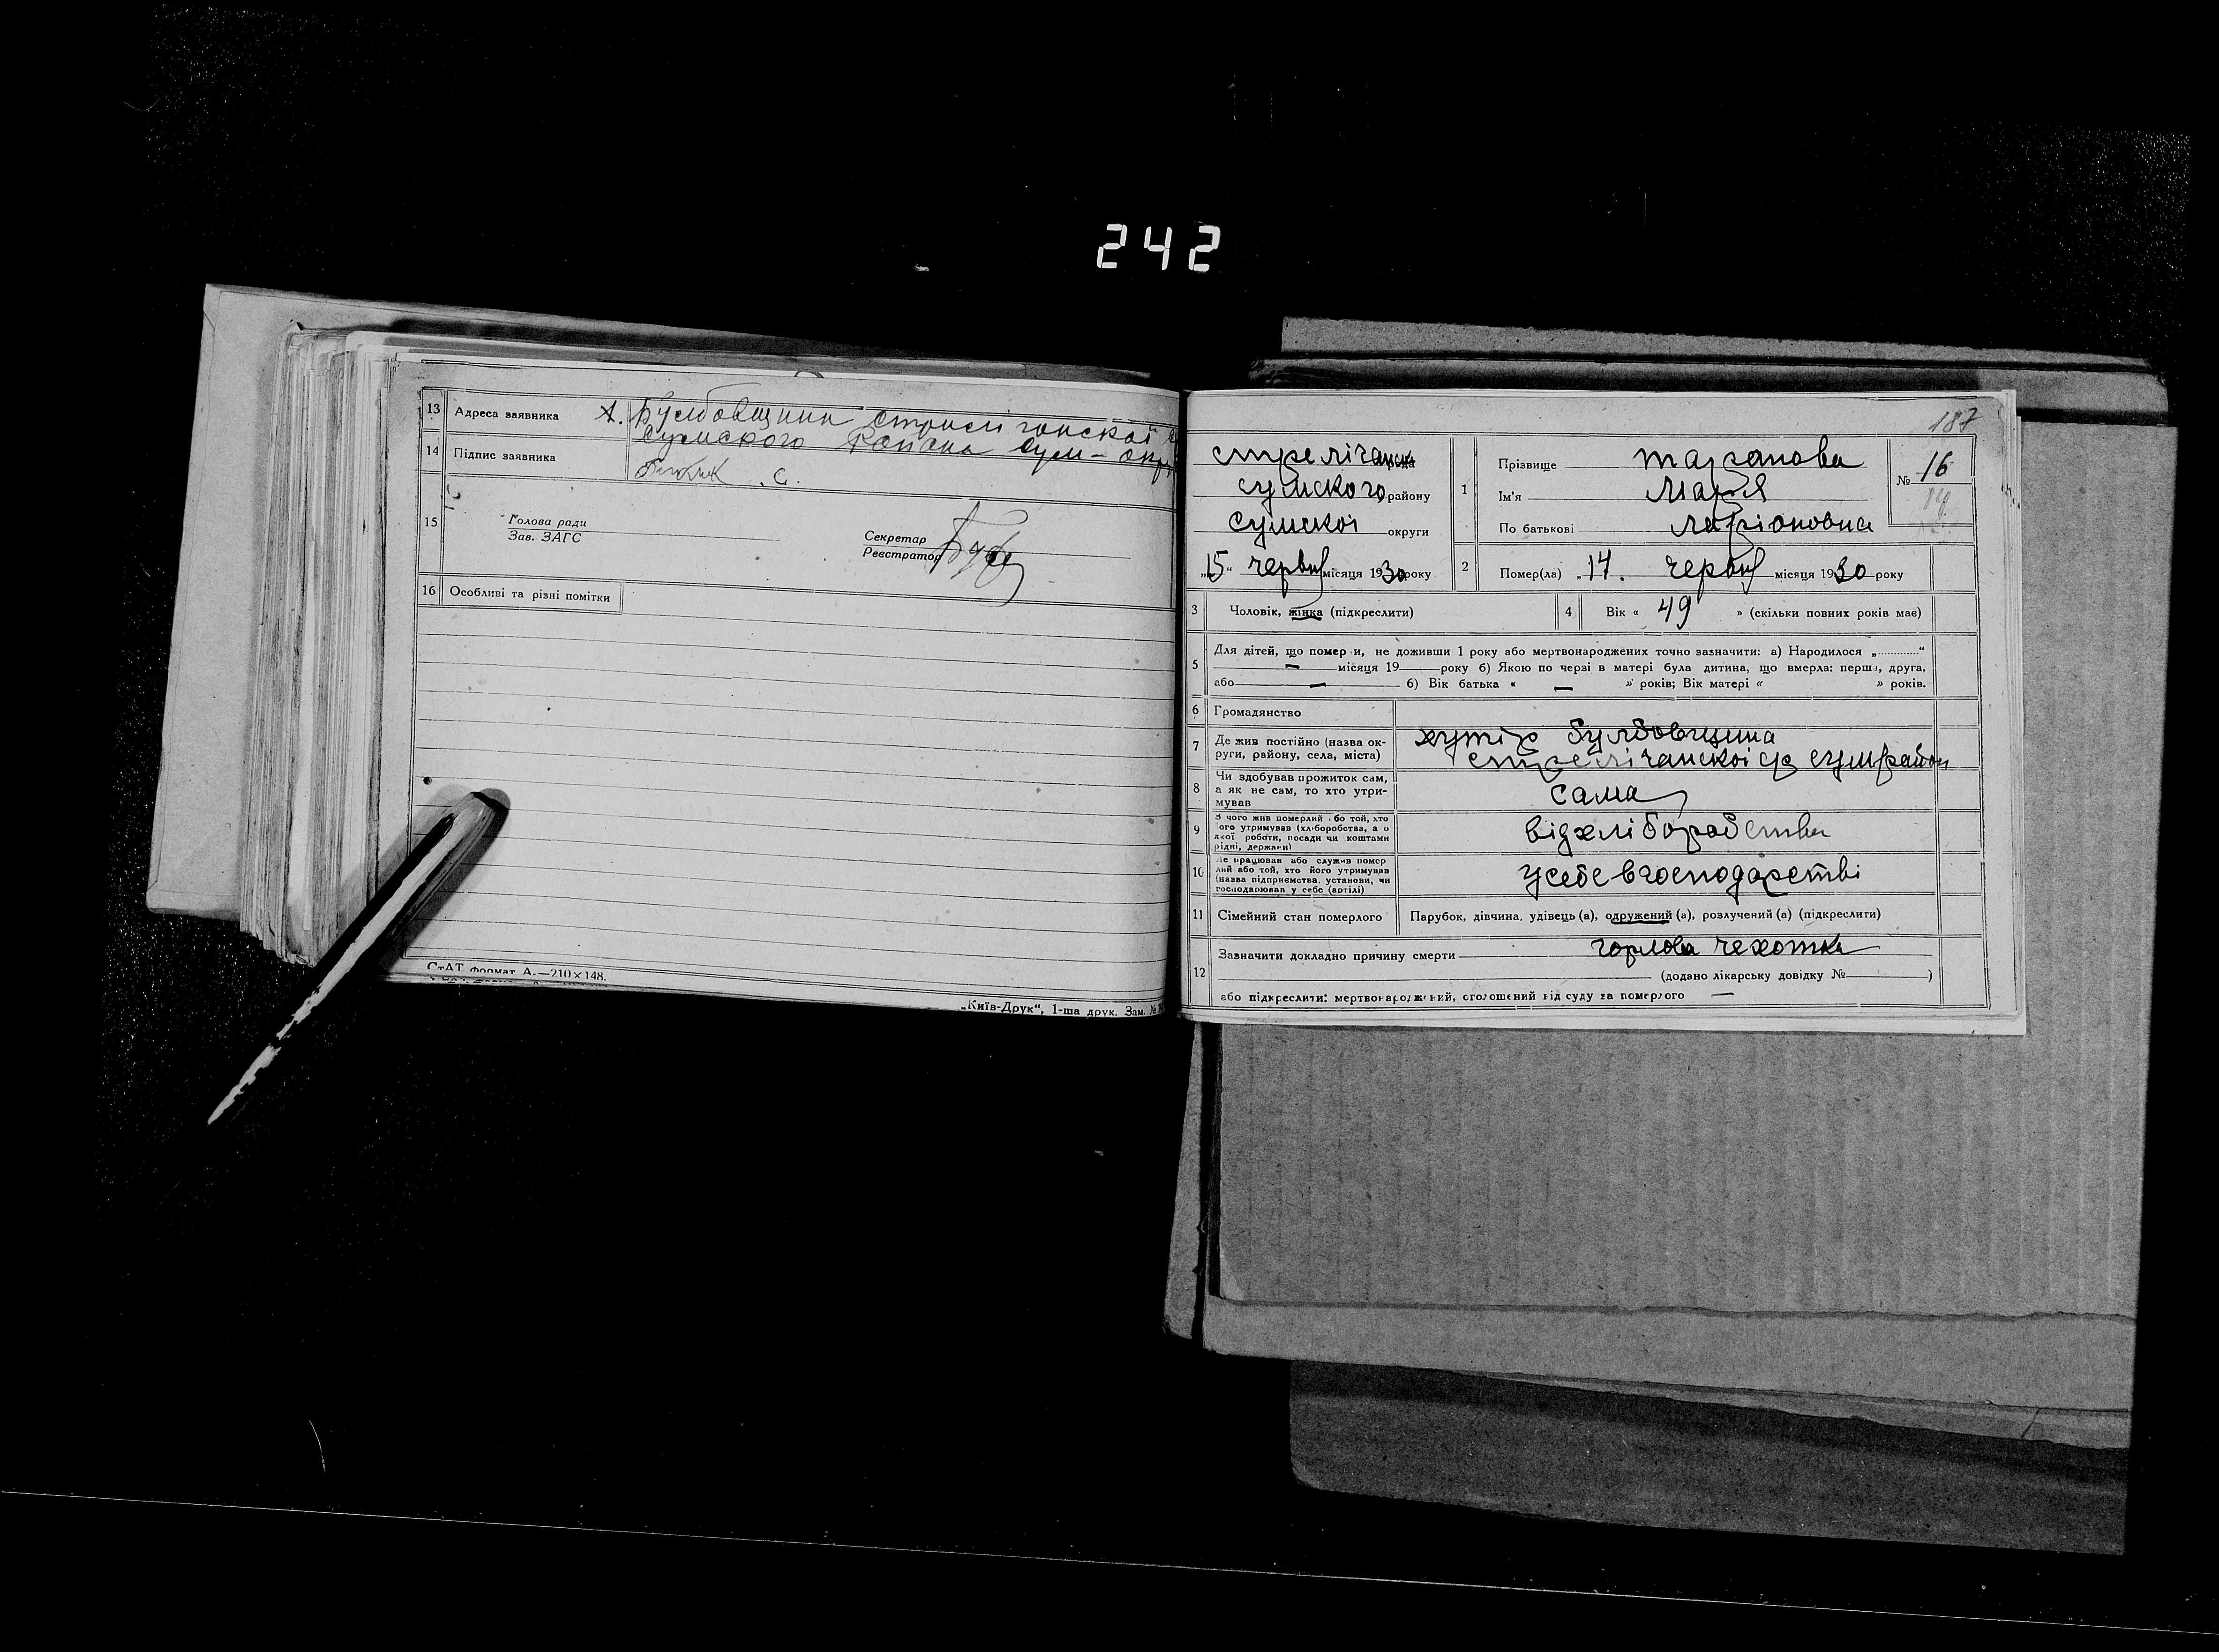 242
13 Адреса заявника х. Булбовщини стрилі чанскай с
сумского района сум – окр
14 Підпис заявника
15 Голова ради
Зав. ЗАГС
Секретар
Реєстратор
16 Особливі та різні помітки
СтАТ формат А₅—210×148.
„Київ-Друк“, 1-ша друк. Зам. №
187
стрелічанска
сумского району
сумскоі округи
„15“ червня місяця 1930 року
1 Прізвище тарапова
Ім'я Марія
По батькові ларіоновна
№ 16
2 Помер(ла) „14. червня місяця 1930 року
3 Чоловік, жінка (підкреслити)
4 Вік « 49 » (скільки повних років має)
5 Для дітей, що померли, не доживши 1 року або мертвонароджених точно зазначити: а) Народилося „............“
— місяця 19 року б) Якою по черзі в матері була дитина, що вмерла: перша, друга,
або — б) Вік батька « — » років; Вік матері « » років.
6 Громадянство
7 Де жив постійно (назва ок-
руги, району, села, міста)
хутір булбовщина
стрелічанскоі ср сумрайон
8 Чи здобував прожиток сам,
а як не сам, то хто утри-
мував
сама
9 З чого жив померлий або той, хто
його утримував (хліборобства, а о
якої роботи, посади чи коштами
рідні, держави)
від хліборобства
10 Де працював або служив помер
лий або той, хто його утримував
(назва підприємства, установи, чи
господарював у себе (артілі)
у себе в господарстві
11 Сімейний стан померлого Парубок, дівчина, удівець (а), одружений (а), розлучений (а) (підкреслити)
12 Зазначити докладно причину смерти горлова чехотка
(додано лікарську довідку № )
або підкреслити: мертвонароджений, оголошений від суду за померлого —